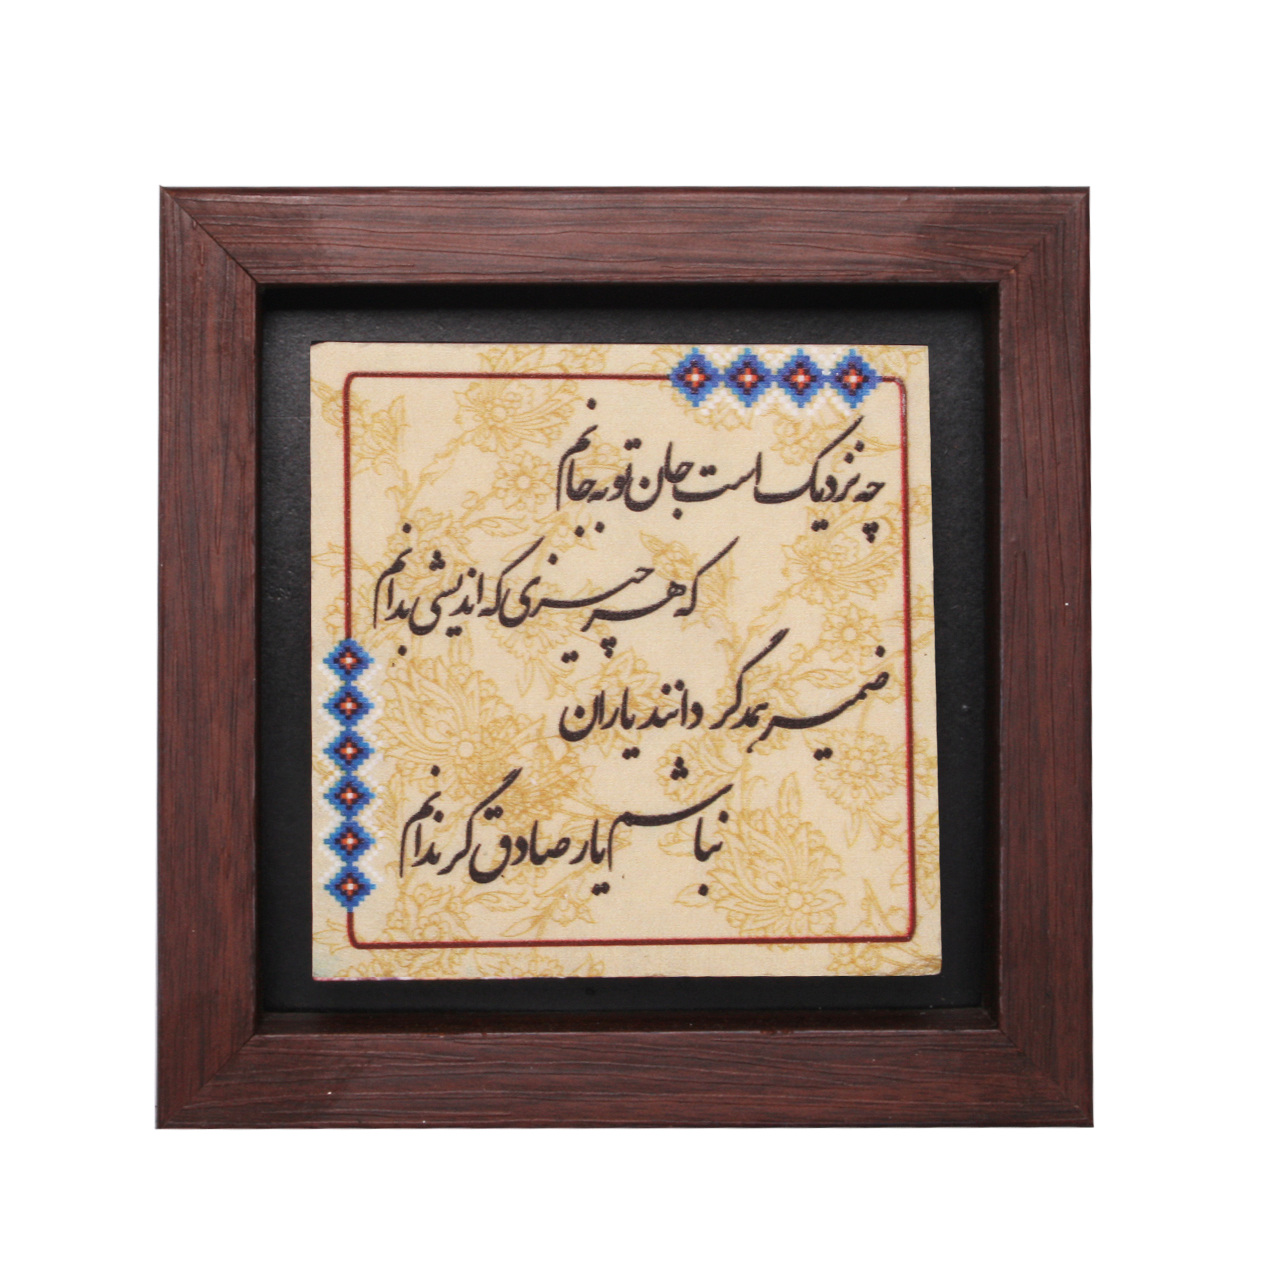 چه نزدیک است جان تو به جانم
که هر چیزی که اندیشی بدانم
ضمیر همدگر دانند یاران
نباشم یار صادق گر ندانم